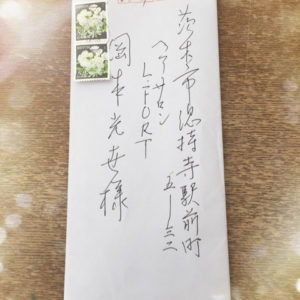 茨木市総持寺駅前町
五ー三二
ヘアーサロン
L-FORT
岡本光世様